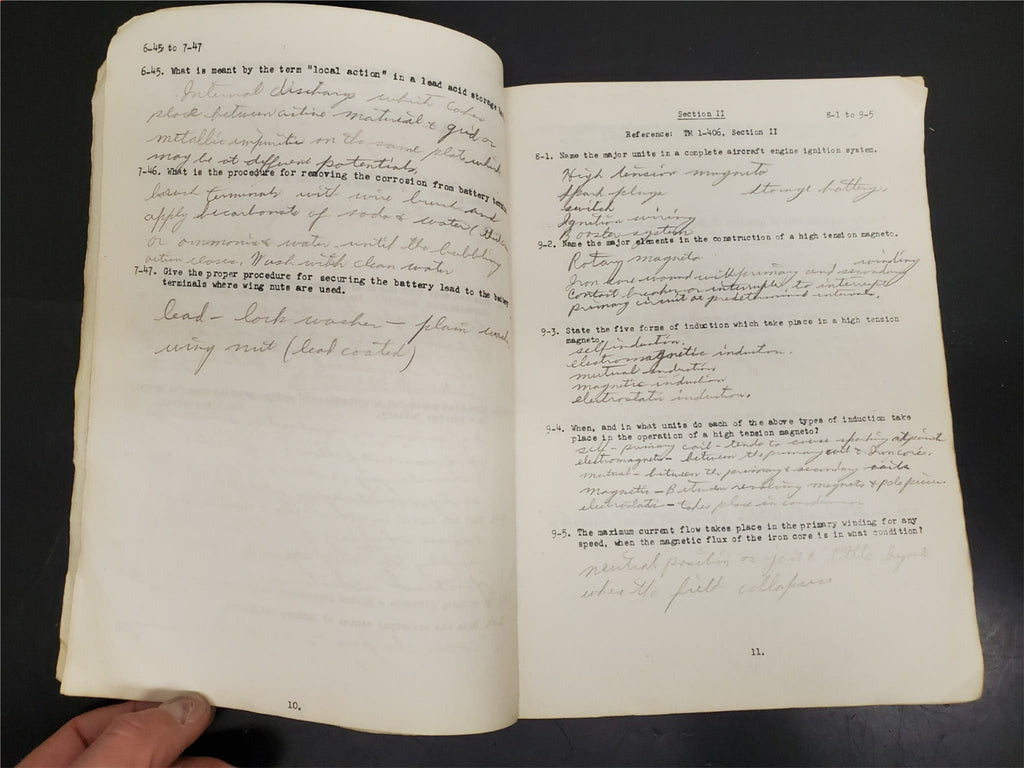 6-45 to 7-47
6-45. What is meant by the term "local action" in a lead acid storage
Internal discharge which takes
place between active material & grid or
metallic impurities on the same plate which
may be at different potentials.
7-46. What is the procedure for removing the corrosion from battery
brush terminals with wire brush and
apply bicarbonate of soda & water
or ammonia & water until the bubbling
action ceases. Wash with clean water
7-47. Give the proper procedure for securing the battery lead to the battery
terminals where wing nuts are used.
lead - lock washer - plain
wing nut (lead coated)
10.
Section II
8-1 to 9-5
Reference: TM 1-406, Section II
8-1. Name the major units in a complete aircraft engine ignition system.
High tension magneto
Spark plugs storage battery
switch
Ignition wiring
Booster system
9-2. Name the major elements in the construction of a high tension magneto.
Rotary magneto
Iron core wound with primary and secondary winding
Contact breaker or interrupter to interrupt
primary circuit at predetermined intervals.
9-3. State the five forms of induction which take place in a high tension
magneto.
self induction.
electromagnetic induction.
mutual induction
magnetic induction
electrostatic induction.
9-4. When, and in what units do each of the above types of induction take
place in the operation of a high tension magneto?
self - primary coil - tends to cause sparking at point
electromagnetic - between the primary coil & Iron core.
mutual - between the primary & secondary coils
magnetic - Between revolving magneto & pole pieces
electrostatic - takes place in condenser
9-5. The maximum current flow takes place in the primary winding for any
speed, when the magnetic flux of the iron core is in what condition?
neutral position or just a little beyond
when the field collapses
11.